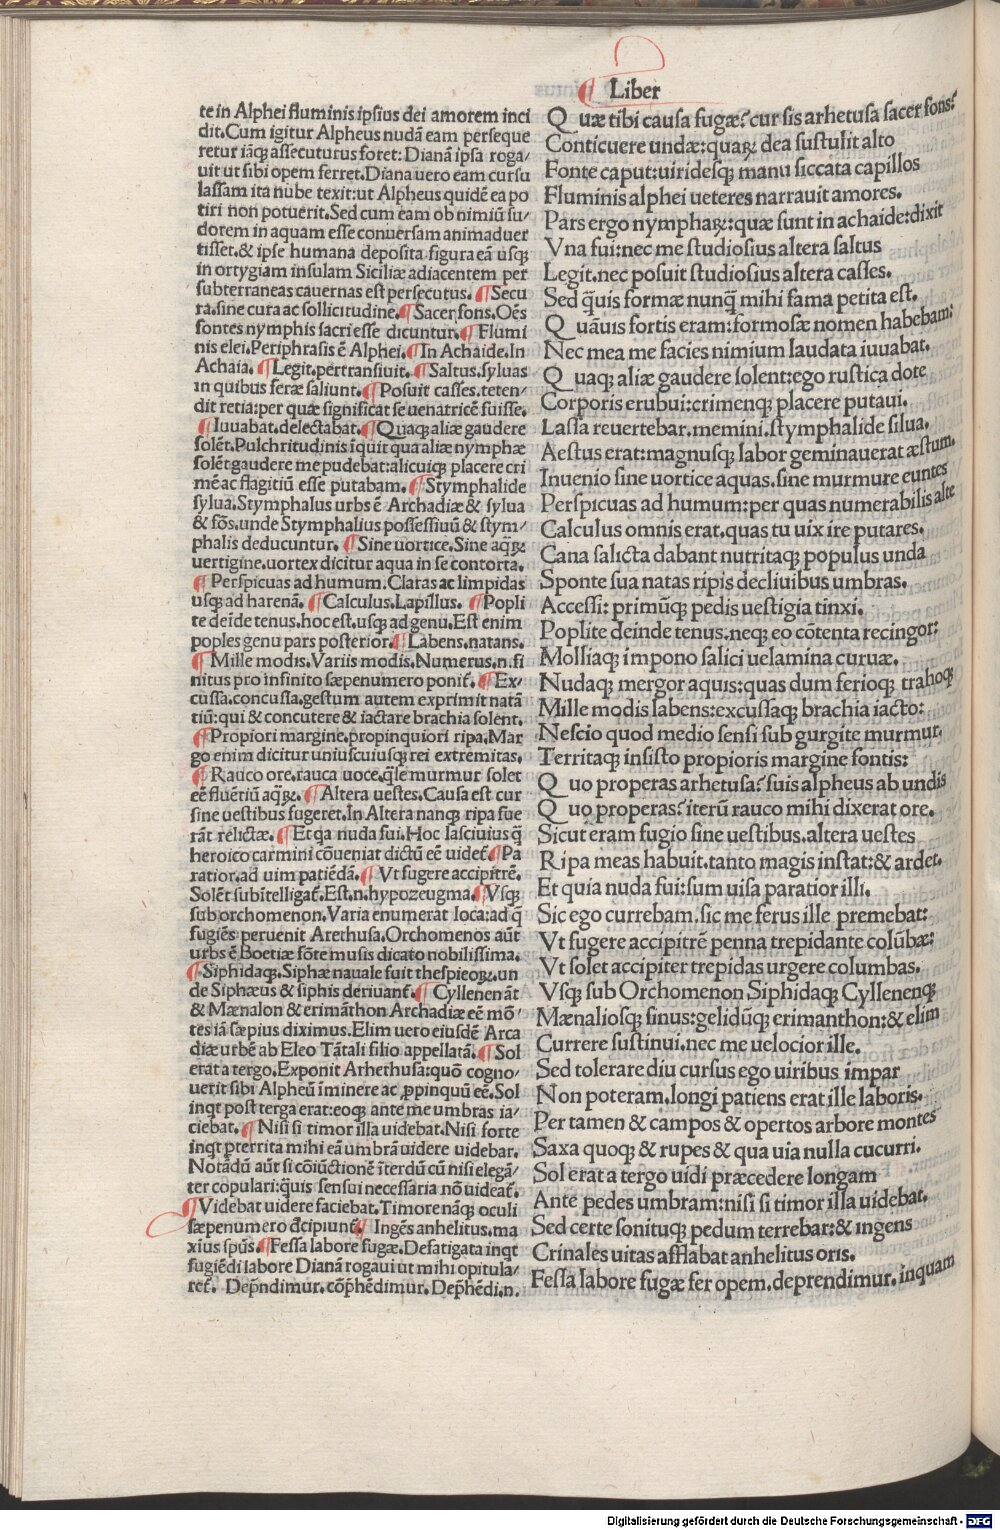 ¶ Liber
te in Alphei fluminis ipsius dei amorem inci
dit. Cum igitur Alpheus nudā eam perseque
retur iāq; assecuturus foret: Dianā ipsa roga/
uit ut sibi opem ferret. Diana uero eam cursu
lassam ita nube texit: ut Alpheus quidē ea po
tiri non potuerit. Sed cum eam ob nimiū su/
dorem in aquam esse conuersam animaduer
tisset. & ipse humana deposita figura eā usq;
in ortygiam insulam Siciliæ adiacentem per
subterraneas cauernas est persecutus. ¶ Secu
ra. sine cura ac sollicitudine. ¶ Sacer fons. Oēs
fontes nymphis sacri esse dicuntur. ¶ Flumi
nis elei. Periphrasis ē Alphei. ¶ In Achaide. In
Achaia. ¶ Legit. pertransiuit. ¶ Saltus. syluas
in quibus feræ saliunt. ¶ Posuit casses. teten/
dit retia: per quæ significat se uenatricē fuisse.
¶ Iuuabat. delectabat. ¶ Quaq; aliæ gaudere
solēt. Pulchritudinis īquit qua aliæ nymphæ
solēt gaudere me pudebat: alicuiq; placere cri
mē ac flagitiū esse putabam. ¶ Stymphalide
sylua. Stymphalus urbs ē Archadiæ & sylua
& fōs. unde Stymphalius possessiuū & stym/
phalis deducuntur. ¶ Sine uortice. Sine aq̄ꝝ
uertigine. uortex dicitur aqua in se contorta.
¶ Perspicuas ad humum. Claras ac limpidas
usq; ad harenā. ¶ Calculus. Lapillus. ¶ Popli
te deīde tenus. hoc est. usq; ad genu. Est enim
poples genu pars posterior. ¶ Labens. natans.
¶ Mille modis. Variis modis. Numerus. n. fi
nitus pro infinito sæpenumero ponit̄. ¶ Ex/
cussa. concussa. gestum autem exprimit natā
tiū: qui & concutere & iactare brachia solent.
¶ Propiori margine. propinquiori ripa. Mar
go enim dicitur uniuscuiusq; rei extremitas.
¶ Rauco ore. rauca uoce. q̄le murmur solet
eē fluētiū aq̄ꝝ. ¶ Altera uestes. Causa est cur
sine uestibus fugeret. In Altera nanq; ripa fue
rāt relictæ. ¶ Et qa nuda fui. Hoc lasciuius q̄
heroico carmini cōueniat dictū eē uidet̄. ¶ Pa
ratior. ad uim patiēdā. ¶ Vt fugere accipitrē.
Solēt subītelligat̄. Est. n. hypozeugma. ¶ Vsq;
sub orchomenon. Varia enumerat loca: ad q̄
fugiēs peruenit Arethusa. Orchomenos aūt
urbs ē Boetiæ fōte musis dicato nobilissima.
¶ Siphidaq;. Siphæ nauale fuit thespieoꝝ. un
de Siphæus & siphis deriuant̄. ¶ Cyllenen āt
& Mænalon & erimāthon Archadiæ eē mō/
tes iā sæpius diximus. Elim uero eiusdē Arca
diæ urbē ab Eleo Tātali filio appellatā. ¶ Sol
erat a tergo. Exponit Arhethusa: quō cogno/
uerit sibi Alpheū iminere ac ꝓpinquū eē. Sol
inqt post terga erat: eoq; ante me umbras ia/
ciebat. ¶ Nisi si timor illa uidebat. Nisi forte
inqt pterrita mihi eā umbrā uidere uidebar.
Notādū aūt si cōiūctionē īterdū cū nisi elegā/
ter copulari: q̄uis sensui necessaria nō uideat̄.
¶ Videbat uidere faciebat. Timore nāq; oculi
sæpenumero đcipiunt̄. ¶ Ingēs anhelitus. ma
xius spūs. ¶ Fessa labore fugæ. Defatigata inqt
fugiēdi labore Dianā rogaui ut mihi opitula/
ret̄. Dep̄ndimur. cōp̄hēdimur. Dep̄hēdi. n.
Q uæ tibi causa fugæ? cur sis arhetusa sacer fons?
Conticuere undæ: quaꝝ dea sustulit alto
Fonte caput: uiridesq; manu siccata capillos
Fluminis alphei ueteres narrauit amores.
Pars ergo nymphaꝝ: quæ sunt in achaide: dixit
Vna fui: nec me studiosius altera saltus
Legit. nec posuit studiosius altera casses.
Sed q̄uis formæ nunq̄ mihi fama petita est.
Q uāuis fortis eram: formosæ nomen habebam:
Nec mea me facies nimium laudata iuuabat.
Q uaq; aliæ gaudere solent: ego rustica dote
Corporis erubui: crimenq; placere putaui.
Lassa reuertebar. memini. stymphalide silua.
Aestus erat: magnusq; labor geminauerat æstum.
Inuenio sine uortice aquas. sine murmure euntes
Perspicuas ad humum: per quas numerabilis alte
Calculus omnis erat. quas tu uix ire putares.
Cana salicta dabant nutritaq; populus unda
Sponte sua natas ripis decliuibus umbras.
Accessi: primūq; pedis uestigia tinxi.
Poplite deinde tenus. neq; eo cōtenta recingor:
Molliaq; impono salici uelamina curuæ.
Nudaq; mergor aquis: quas dum ferioq; trahoq;
Mille modis labens: excussaq; brachia iacto:
Nescio quod medio sensi sub gurgite murmur.
Territaq; insisto propioris margine fontis:
Q uo properas arhetusa? suis alpheus ab undis
Q uo properas? iterū rauco mihi dixerat ore.
Sicut eram fugio sine uestibus. altera uestes
Ripa meas habuit. tanto magis instat: & ardet.
Et quia nuda fui: sum uisa paratior illi.
Sic ego currebam. sic me ferus ille premebat:
Vt fugere accipitrē penna trepidante colūbæ:
Vt solet accipiter trepidas urgere columbas.
Vsq; sub Orchomenon Siphidaq; Cyllenenq;
Mænaliosq; sinus: gelidūq; erimanthon: & elim
Currere sustinui. nec me uelocior ille.
Sed tolerare diu cursus ego uiribus impar
Non poteram. longi patiens erat ille laboris.
Per tamen & campos & opertos arbore montes
Saxa quoq; & rupes & qua uia nulla cucurri.
Sol erat a tergo uidi præcedere longam
Ante pedes umbram: nisi si timor illa uidebat.
Sed certe sonituq; pedum terrebar: & ingens
Crinales uitas afflabat anhelitus oris.
Fessa labore fugæ fer opem. deprendimur. inquam
Digitalisierung gefördert durch die Deutsche Forschungsgemeinschaft - DFG